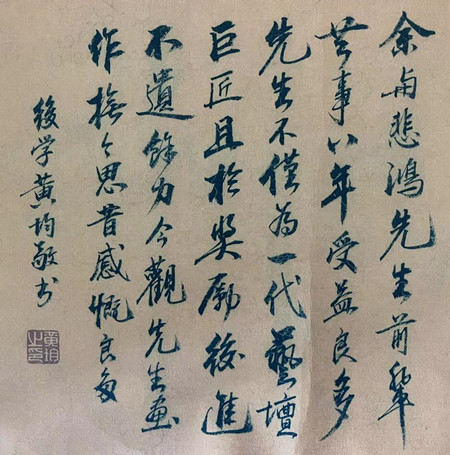 余与悲鸿先生前辈
共事八年受益良多
先生不僅為一代藝壇
巨匠且於奖励後進
不遺餘力今觀先生画
作撫今思昔感慨良多
後学黄均敬书
黄均之印